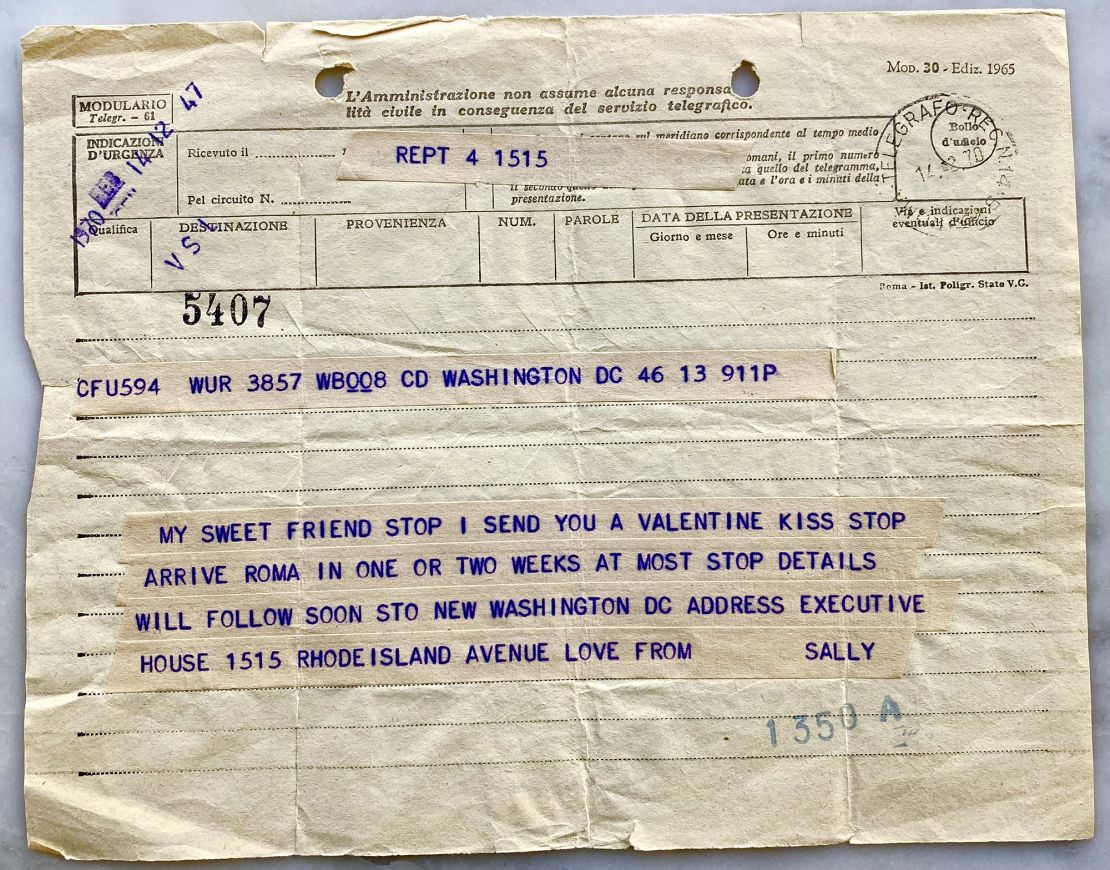 MOD. 30 - Ediz. 1965
L'Amministrazione non assume alcuna responsa
lità civile in conseguenza del servizio telegrafico.
MODULARIO
Telegr. - 61
INDICAZIONI
D'URGENZA
1970 FEB 14 12 47
Ricevuto il
REPT 4 1515
sul meridiano corrispondente al tempo medio
omani, il primo numero
a quello del telegramma,
ata e l'ora e i minuti della
presentazione.
Pel circuito N.
TELEGRAFO
Bollo
d'ufficio
Qualifica
DESTINAZIONE
PROVENIENZA
NUM.
PAROLE
DATA DELLA PRESENTAZIONE
Giorno e mese
Ore e minuti
Via e indicazioni
eventuali d'ufficio
Roma - Ist. Poligr. Stato V.G.
5407
CFU594 WUR 3857 WB008 CD WASHINGTON DC 46 13 911P
MY SWEET FRIEND STOP I SEND YOU A VALENTINE KISS STOP
ARRIVE ROMA IN ONE OR TWO WEEKS AT MOST STOP DETAILS
WILL FOLLOW SOON STO NEW WASHINGTON DC ADDRESS EXECUTIVE
HOUSE 1515 RHODEISLAND AVENUE LOVE FROM SALLY
1350 A